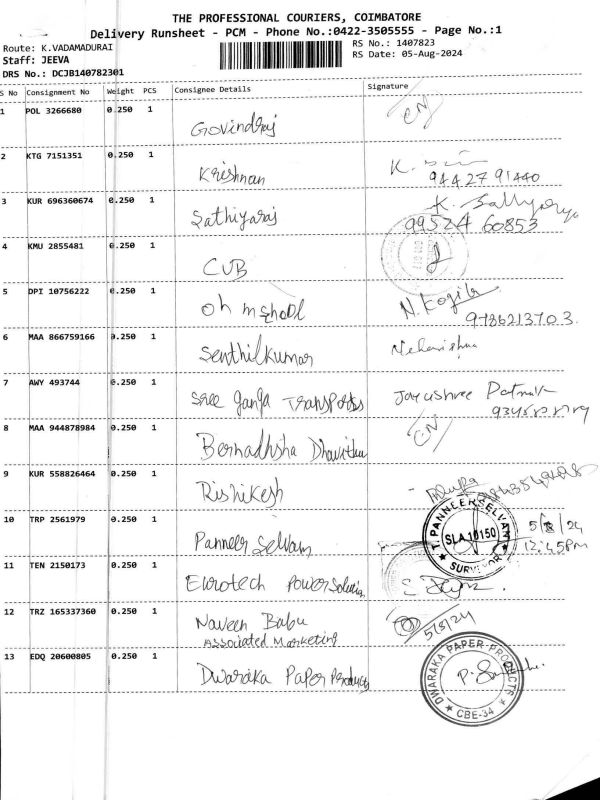 THE PROFESSIONAL COURIERS, COIMBATORE
Delivery Runsheet - PCM - Phone No.:0422-3505555 - Page No.:1
Route: K.VADAMADURAI
RS No.: 1407823
Staff: JEEVA
RS Date: 05-Aug-2024
DRS No.: DCJB140782301
S No Consignment No Weight PCS Consignee Details Signature
1 POL 3266680 0.250 1 Govindraj CN
2 KTG 7151351 0.250 1 Krishnan K.
94427 91440
3 KUR 696360674 0.250 1 Sathiyaraj K. Sathyaraj
99524 60853
4 KMU 2855481 0.250 1 CUB
5 DPI 10756222 0.250 1 oh mshool N. Kogila
9786213703
6 MAA 866759166 0.250 1 Senthilkumar
7 AWY 493744 0.250 1 Sree Ganga Transports Jayashree Patnaik
8 MAA 944878984 0.250 1 Bernadhsha CN
9 KUR 558826464 0.250 1 Rishikesh
10 TRP 2561979 0.250 1 Panneer Selvam T. PANNEERSELVAM SLA 10150 SURVEYOR 5/8/24
12:45pm
11 TEN 2150173 0.250 1 Eurotech Power
12 TRZ 165337360 0.250 1 Naveen Babu 5/8/24
Associated Marketing
13 EDQ 20600805 0.250 1 Dwaraka Paper Products DWARAKA PAPER PRODUCTS CBE-34